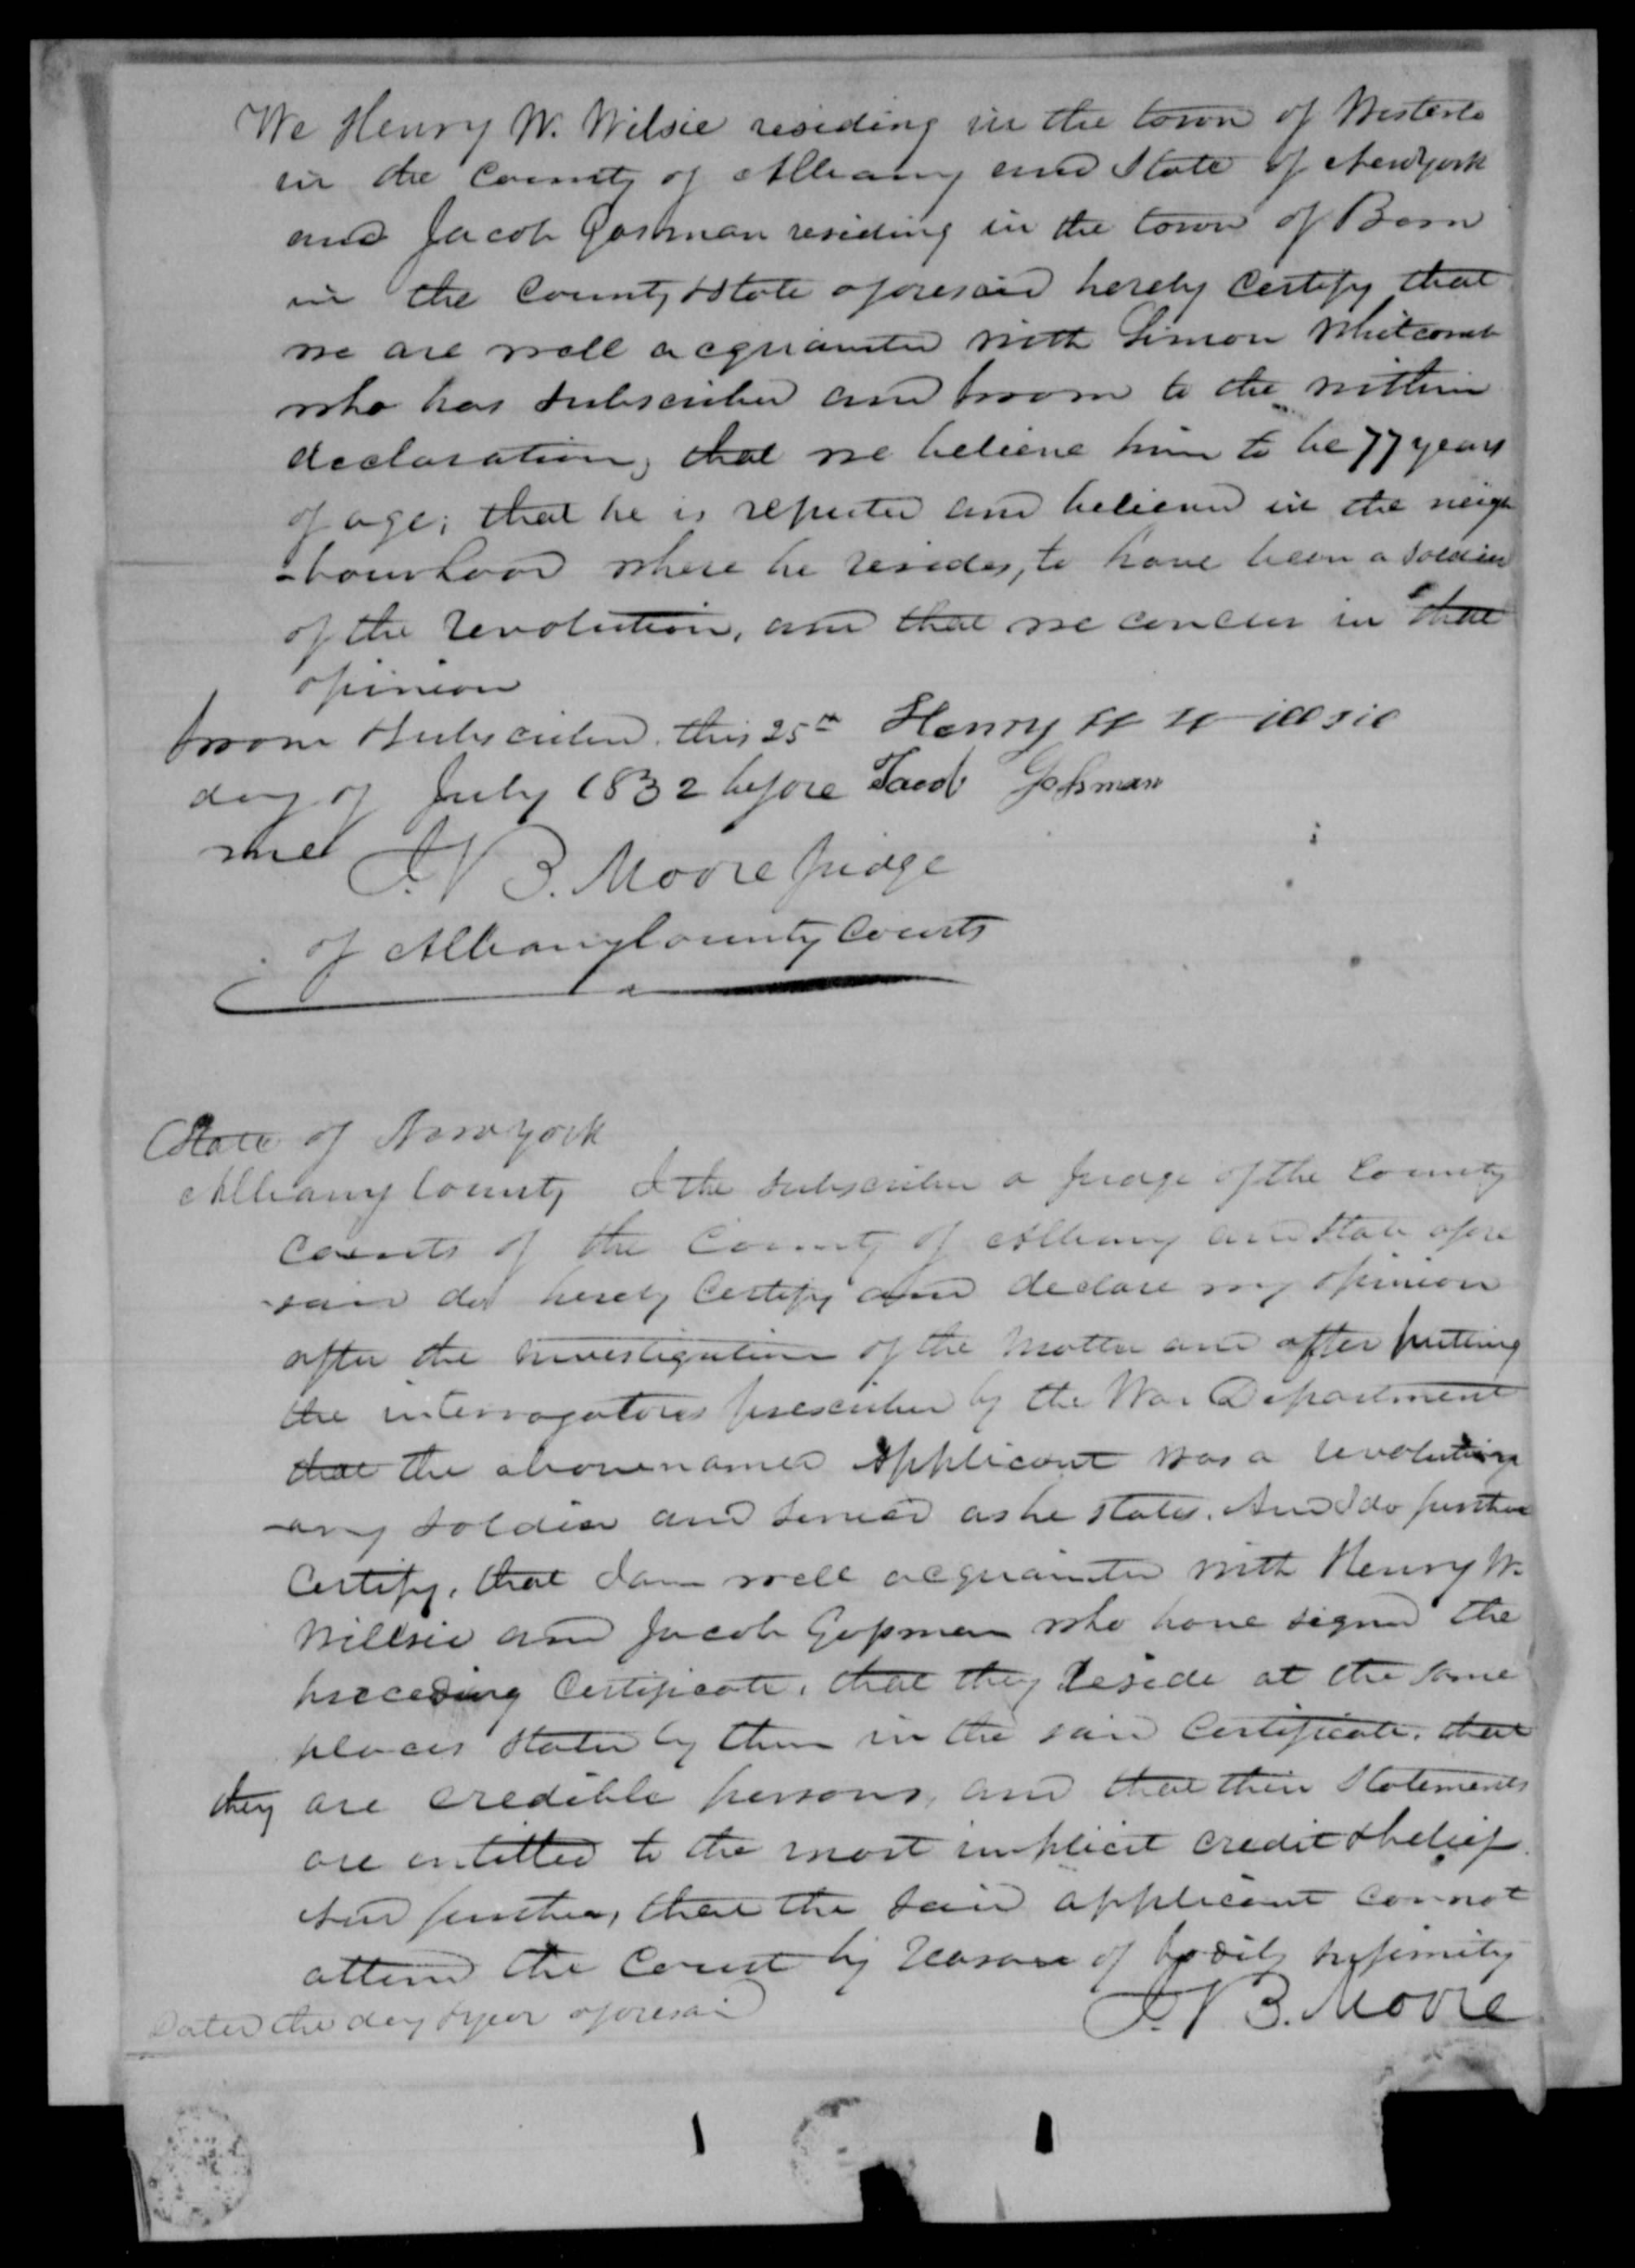 We Henry W. Wilsie residing in the town of Westerlo
in the County of Albany and State of Newyork
and Jacob Gosman residing in the town of Bern
in the County & State aforesaid hereby certify that
we are well acquainted with Simon Whitcomb
who has subscribed and sworn to the within
declaration, that we believe him to be 77 years
of age; that he is reputed and believed in the neigh
-bourhood where he resides, to have been a soldier
of the revolution, and that we concur in that
opinion
Sworn & subscribed this 25th Henry W Willsie
day of July 1832 before Jacob Gosman
me
J. V B. Moore Judge
of Albany County Courts
State of Newyork
Albany County I the subscriber a Judge of the County
Courts of the County of Albany and State afore
-said do hereby Certify and declare my opinion
after the investigation of the matter and after putting
the interrogatories prescribed by the War Department
that the abovenamed Applicant was a revolution
-ary soldier and served as he states. And I do further
Certify, that I am well acquainted with Henry W.
Willsie and Jacob Gosman who have signed the
preceding Certificate, that they reside at the same
places stated by them in the said Certificate, that
they are credible persons, and that their statements
are entitled to the most implicit credit & belief.
And further, that the said applicant cannot
attend the Court by reason of bodily infirmity
Dated the day & year aforesaid
J. V B. Moore